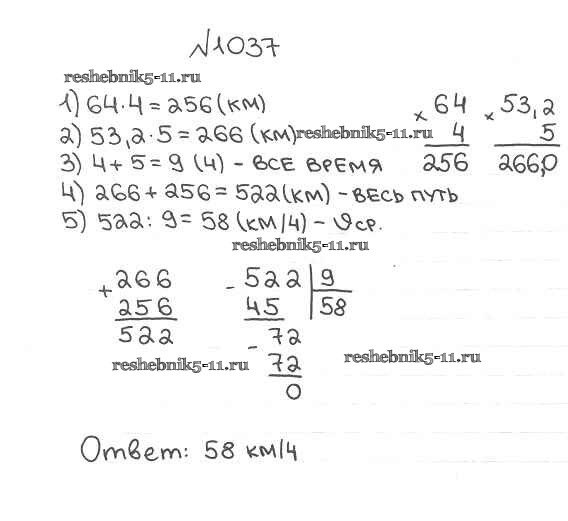 №1037
reshebnik5-11.ru
1) 64·4=256(км)
2) 53,2·5=266 (км) reshebnik5-11.ru
3) 4+5=9 (ч) - ВСЕ ВРЕМЯ
4) 266+256=522(км) - ВЕСЬ ПУТЬ
5) 522:9=58 (км/ч) - υср.
× 64
4
256
× 53,2
5
266,0
reshebnik5-11.ru
+ 266
256
522
- 522 | 9
45 | 58
- 72
72
0
reshebnik5-11.ru
reshebnik5-11.ru
Ответ: 58 км/ч